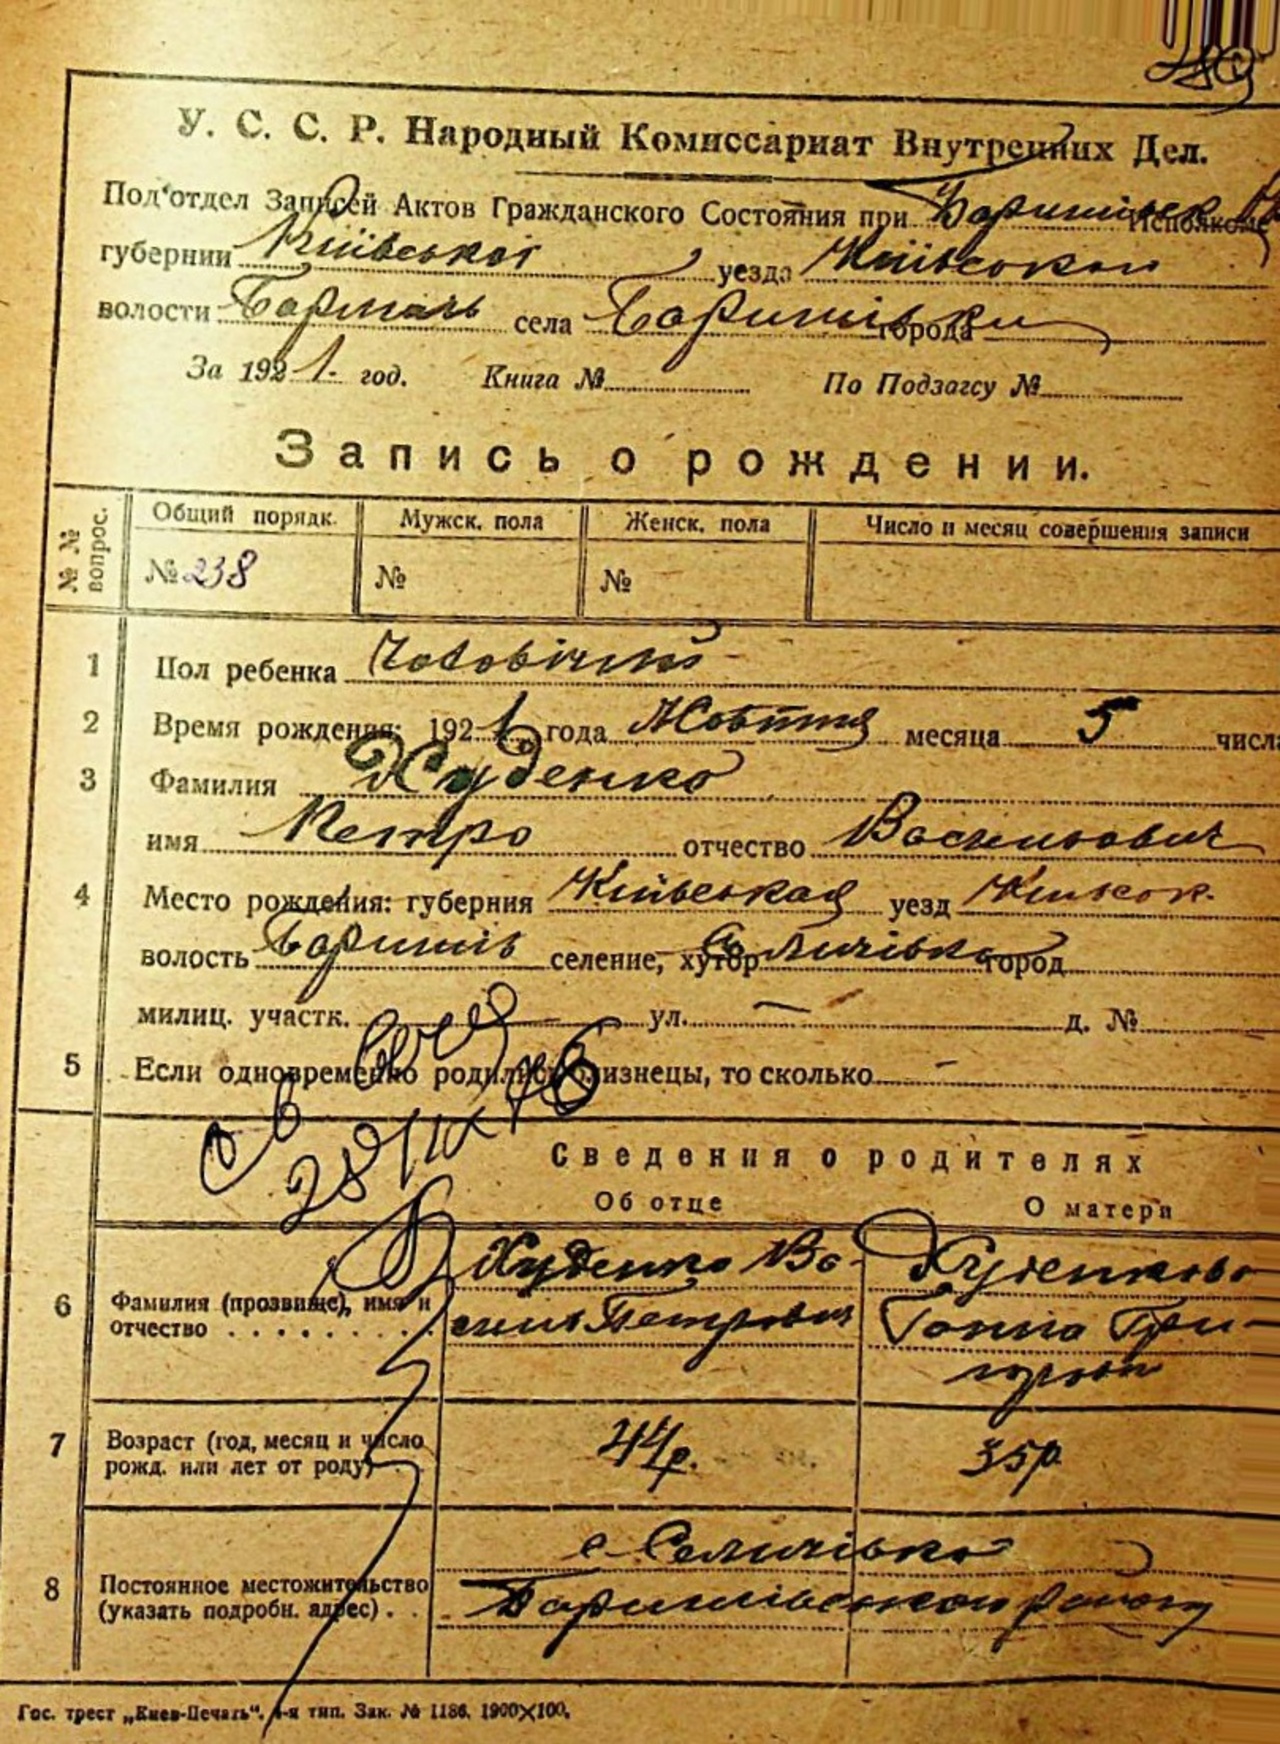 У. С. С. Р. Народный Комиссариат Внутренних Дел.
Под'отдел Записей Актов Гражданского Состояния при Исполкоме
губернии Київської уезда Київського
волости Баришль села Баришівки города
За 1921 год. Книга № По Подзагсу №
Запись о рождении.
№№ вопрос. Общий порядк. Мужск. пола Женск. пола Число и месяц совершения записи
№ 238 № №
1 Пол ребенка Чоловічий
2 Время рождения: 1921 года Жовтня месяца 5 числа
3 Фамилия Худенко
имя Петро отчество Васильович
4 Место рождения: губерния Київськая уезд
волость селение, хутор Селичівка город
милиц. участк. — ул. — д. №
5 Если одновременно родились близнецы, то сколько -
Сведения о родителях
Об отце О матери
6 Фамилия (прозвище), имя и отчество
Худенко Ва-
силь Петрович
Худенкова
Ганна Гри-
7 Возраст (год, месяц и число рожд. или лет от роду) 44р. 35р.
8 Постоянное местожительство (указать подробн. адрес)
с Селичівка
Баришівського району
Гос. трест „Киев-Печать“. 4-я тип. Зак. № 1186. 1900×100.